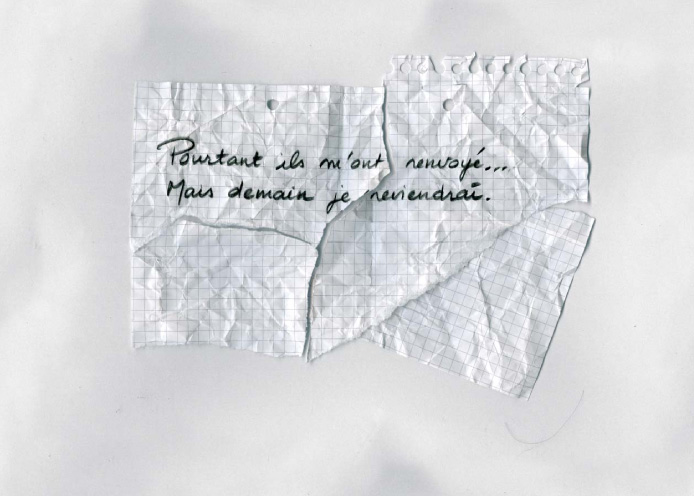 Pourtant ils m'ont renvoyé...
Mais demain je reviendrai.